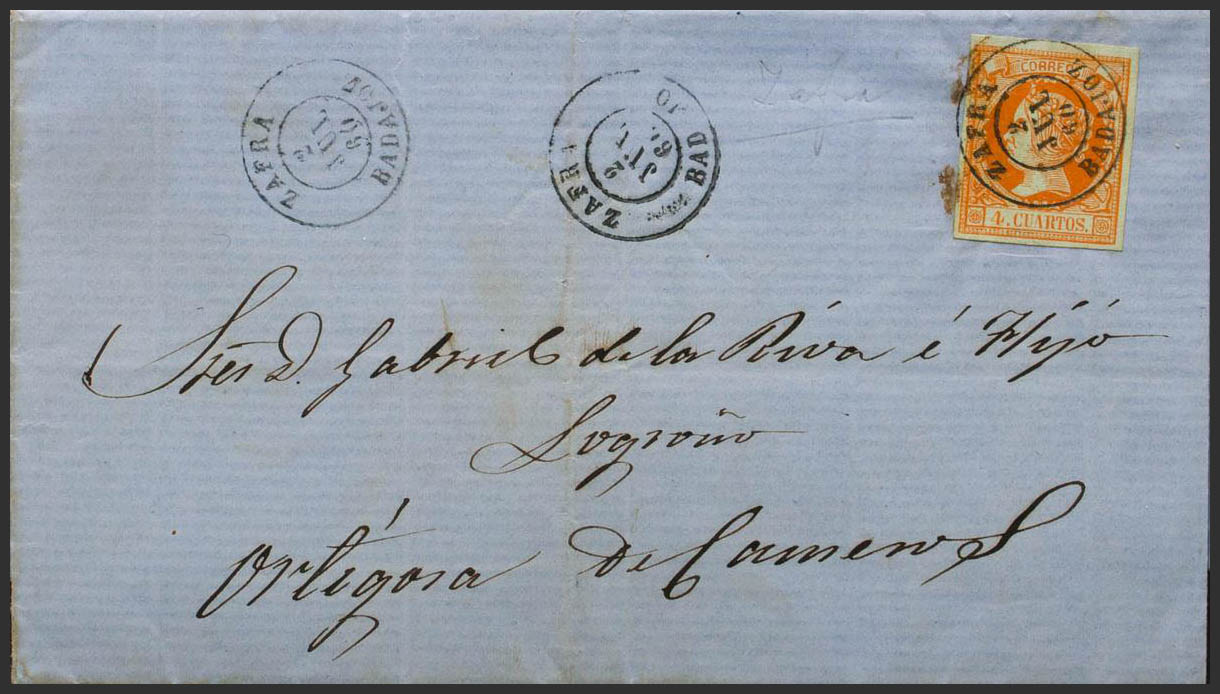 ZAFRA
2
JUL
60
BADAJOZ
ZAFRA
2
JUL
BAD JO
Zafra
CORREOS
ZAFRA
2
JUL
60
BADAJOZ
4. CUARTOS.
Sres D. Gabriel de la Riva é Hijo
Logroño
Ortigosa de Cameros